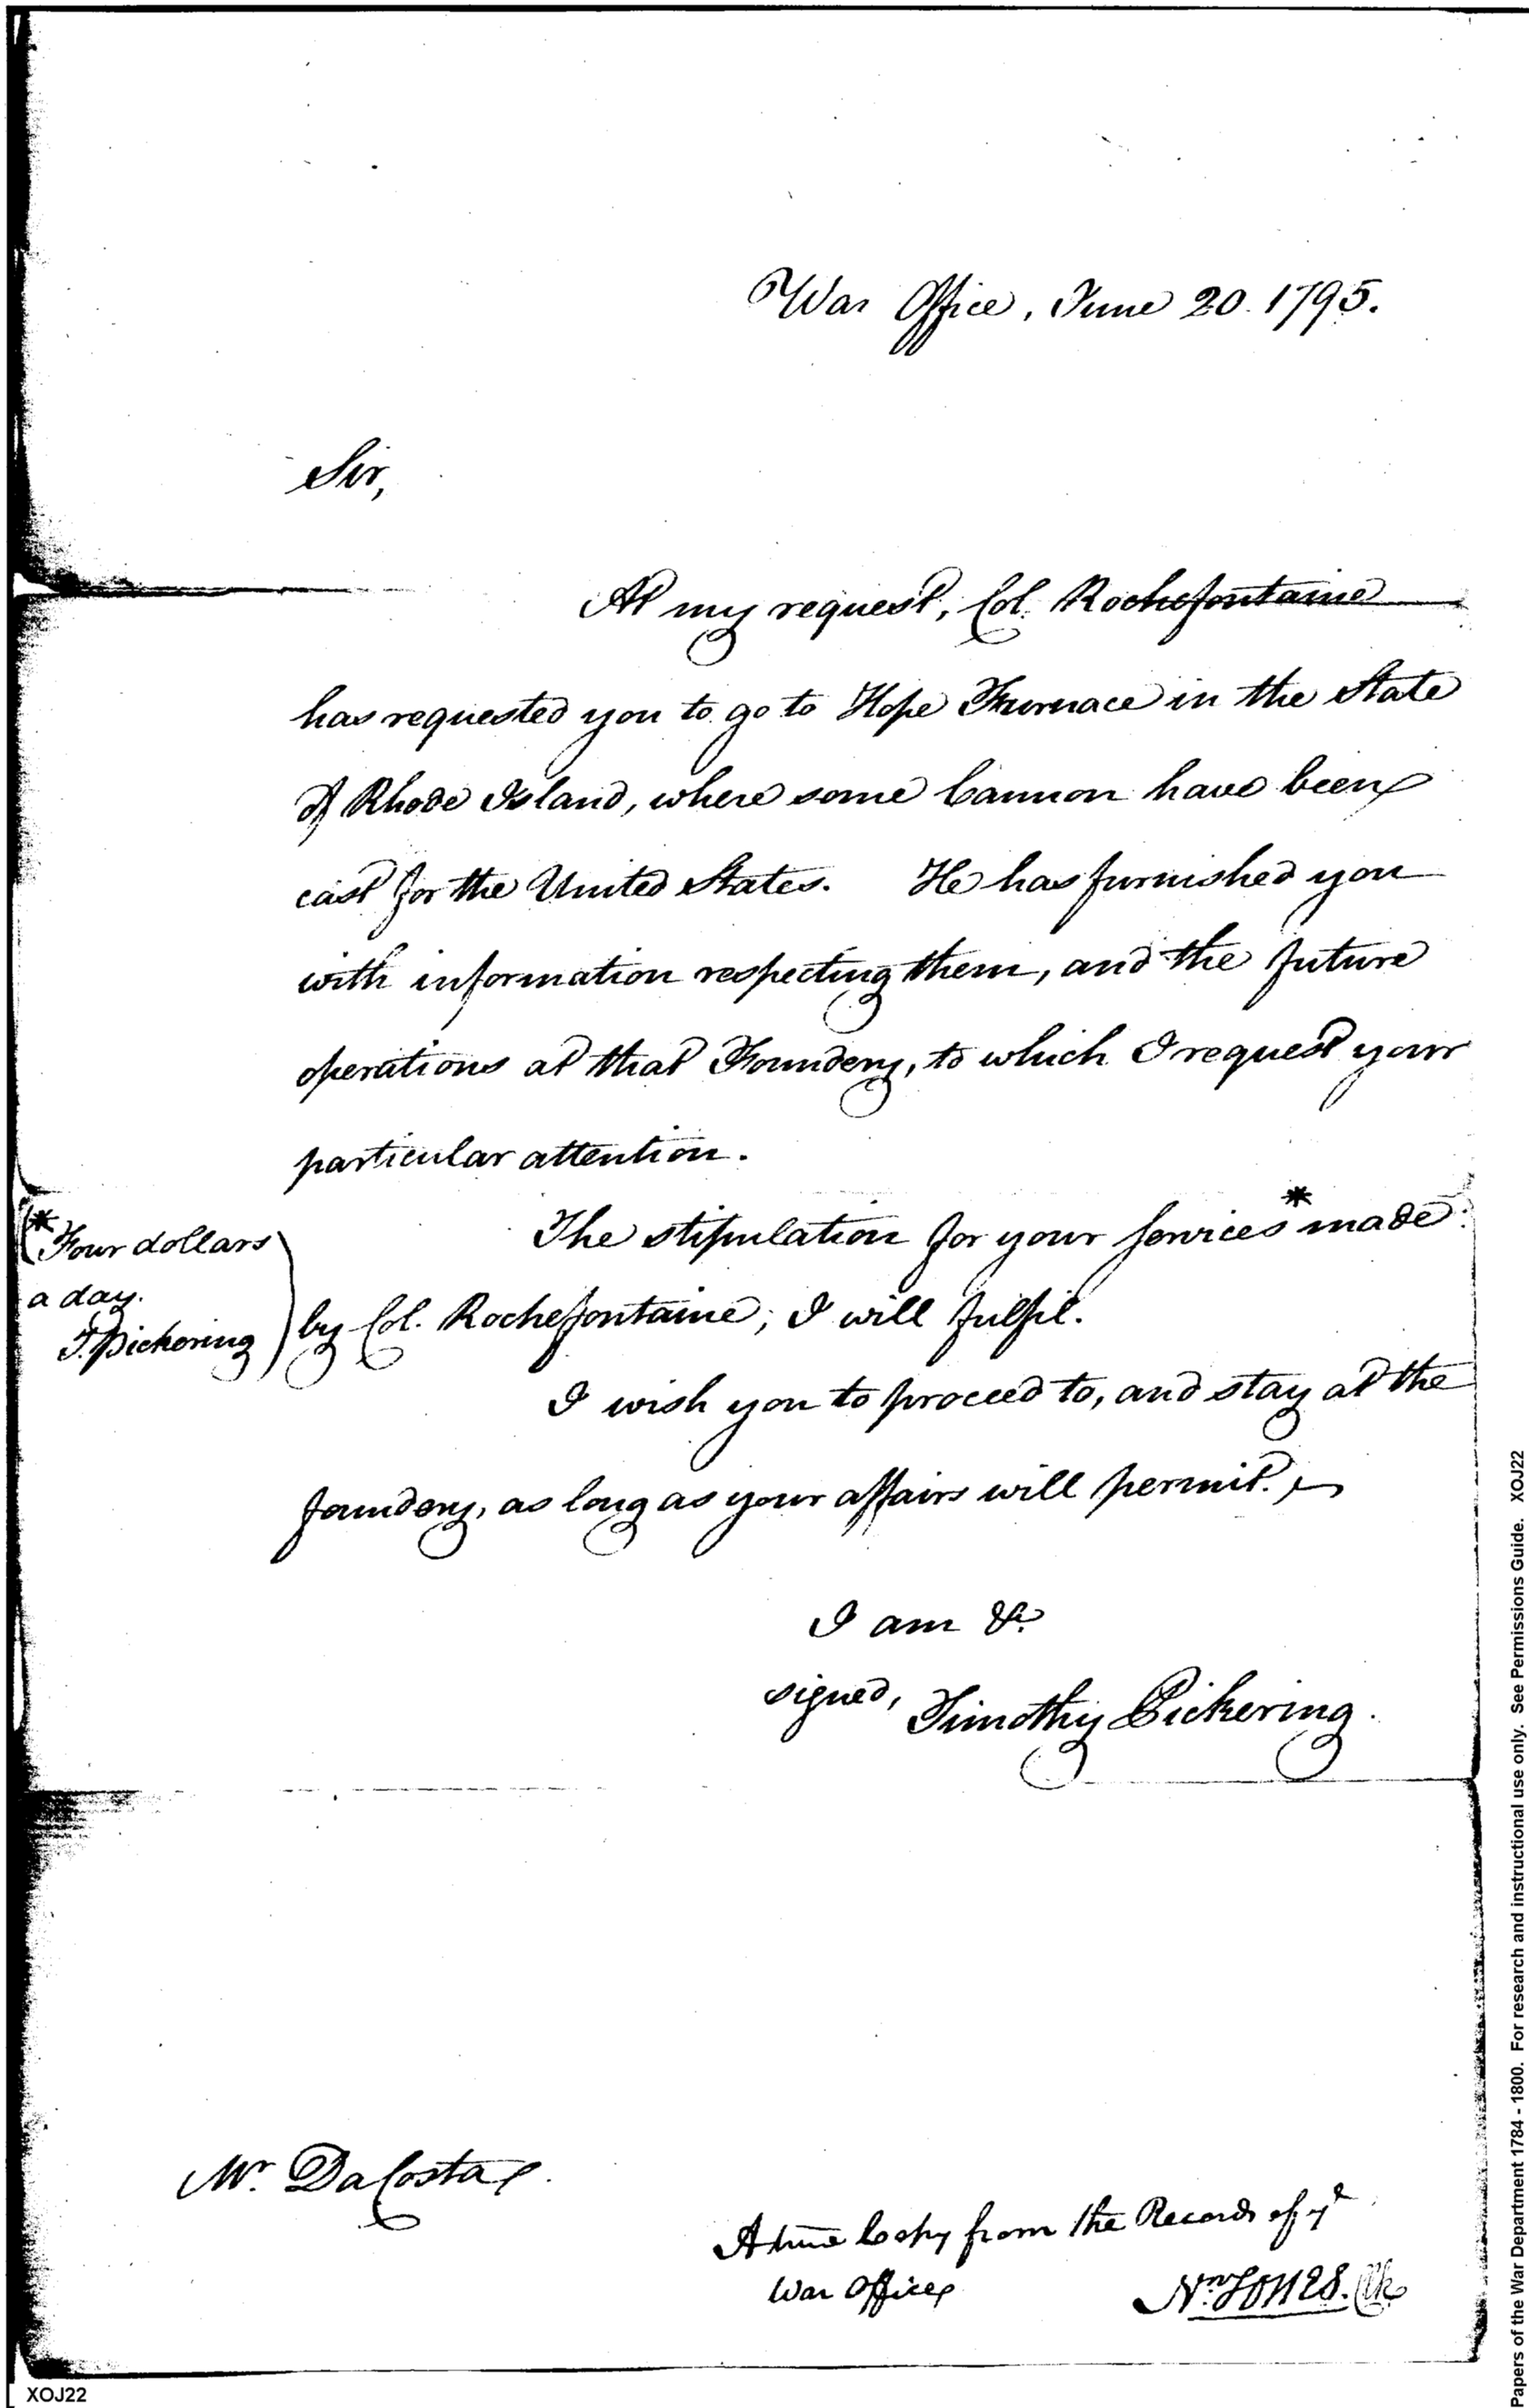 War Office, June 20. 1795.
Sir,
At my request, Col. Rochefontaine
has requested you to go to Hope Furnace in the State
of Rhode Island, where some Cannon have been
cast for the United States. He has furnished you
with information respecting them, and the future
operations at that Foundery, to which I request your
particular attention.
The stipulation for your services * made
by Col. Rochefontaine, I will fulfil.
* Four dollars
a day.
T. Pickering
I wish you to proceed to, and stay at the
foundery, as long as your affairs will permit.
I am &c.
signed, Timothy Pickering.
Mr. DaCosta
A true Copy from the Records of ye
War Office
Nn Jones. Clk
XOJ22
Papers of the War Department 1784 - 1800. For research and instructional use only. See Permissions Guide. XOJ22